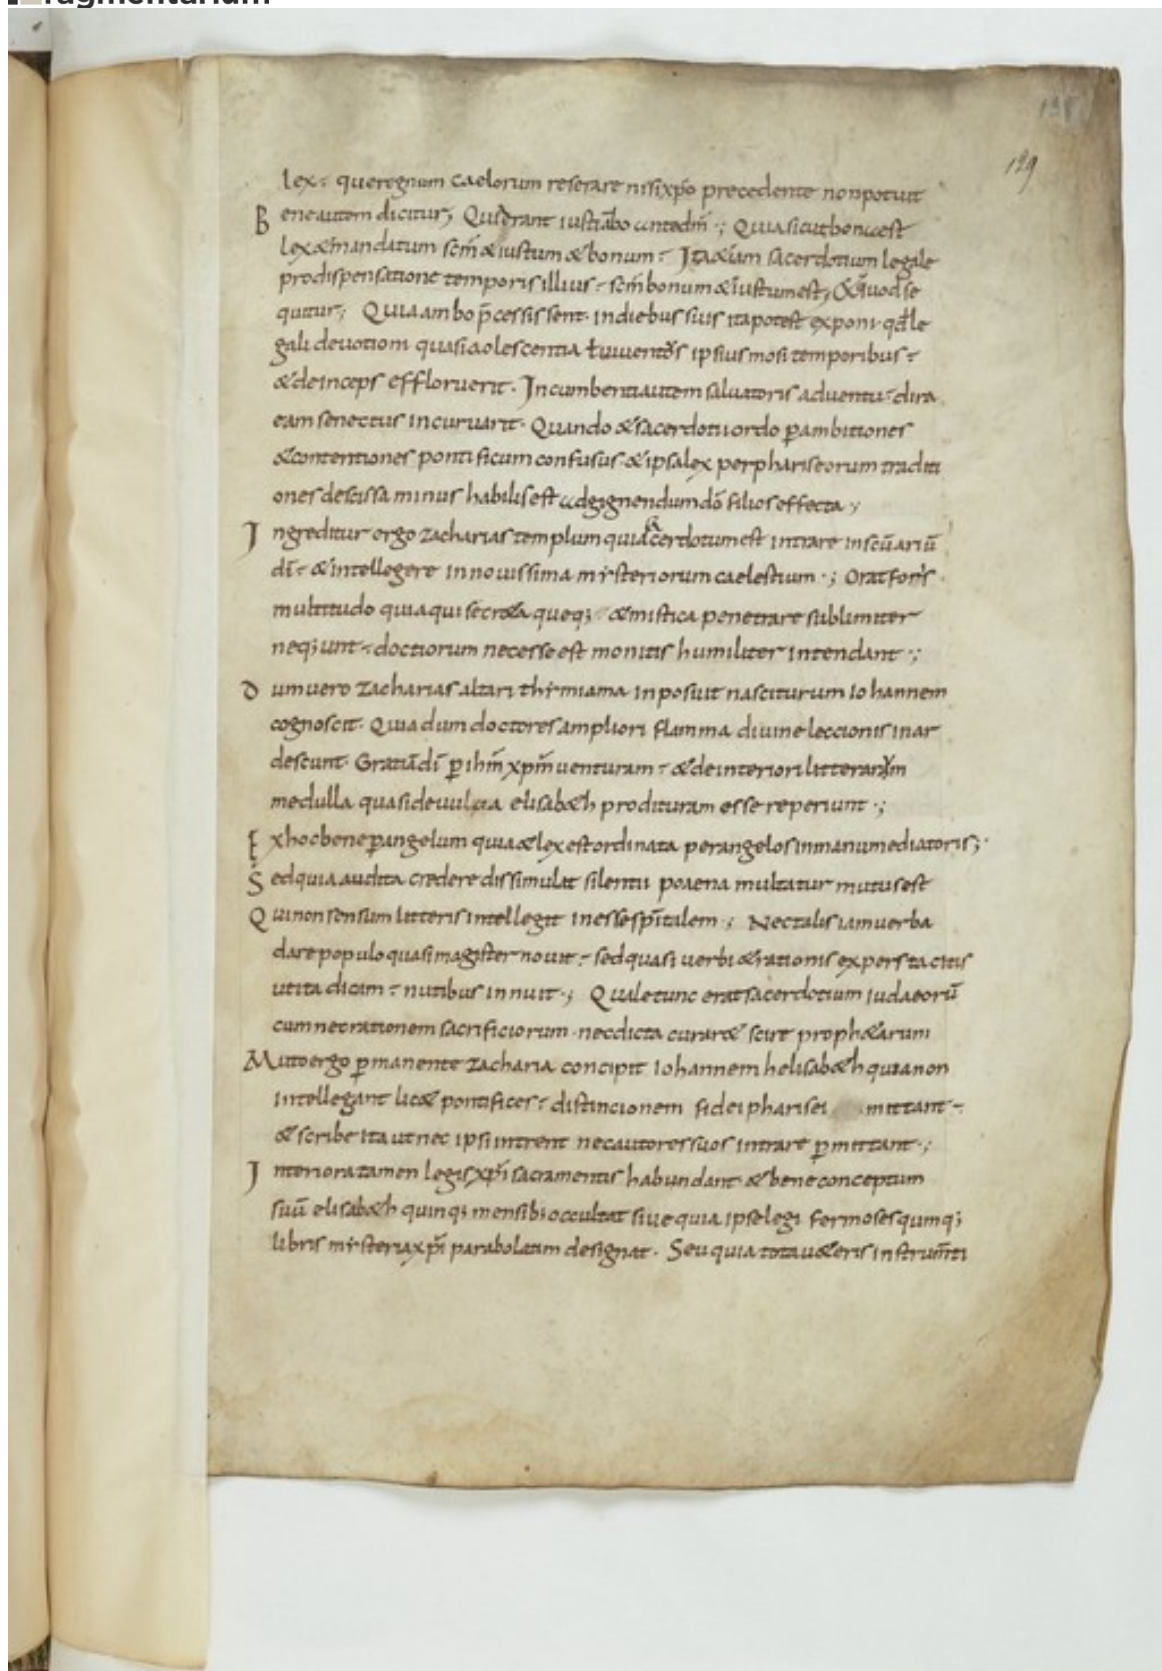 ragmentarium
129
lex: que regnum caelorum reserare nisi xp̄o precedente non potuit
Bene autem dicitur; Quia erant iusti abo ante dm̄ ·; Quia sicut bona est
lex & mandatum scm̄ & iustum & bonum : Ita & iam sacerdotium legale
pro dispensatione temporis illius : scm̄ bonum & iustum est; & quod se
quitur; Quia ambo p̄cessissent · in diebus suis ita potest exponi · qđ le
gali devotioni quasi adolescentia ł iuventus ipsius mosi temporibus :
& deinceps effloruerit · Incumbenti autem salvatoris adventu : dira
eam senectus incurvarit · Quando & sacerdotii ordo p ambitiones
& contentiones pontificum confusus · & ipsa lex per phariseorum traditi
ones descissa minus habilis est ad gignendum dō filios effecta ;
Ingreditur ergo zacharias templum quia sacerdotum est intrare in scūariū
dī : & intellegere in novissima mysteriorum caelestium ·; Orat foris
multitudo quia qui secr&a queq; & mistica penetrare sublimiter
neq;unt : doctiorum necesse est monitis humiliter intendant ·;
Dum vero zacharias altari thymiama inposuit nasciturum iohannem
cognoscit · Quia dum doctores ampliori flamma divine leccionis inar
descunt · Gratiā dī p ihm̄ xpm̄ venturam : & de interiori litterarum
medulla quasi de vulva elisab&h prodituram esse reperiunt ·;
Ex hoc bene p angelum quia & lex est ordinata per angelos in manu mediatoris;
Sed quia audita credere dissimulat silentii poaena multatur mutus est
Qui non sensum litteris intellegit inesse sp̄italem ·; Nec talis iam verba
dare populo quasi magister novit : sed quasi verbi & rationis expers tacitis
ut ita dicam : nutibus innuit ·; Quale tunc erat sacerdotium iudaeorū
cum nec rationem sacrificiorum · nec dicta curar& scire proph&arum
Muto ergo p manente zacharia concipit iohannem helisab&h quia non
intellegant lic& pontifices : distincionem fidei pharisei mittant :
& scribe ita ut nec ipsi intrent nec autores suos intrare p mittant ·;
Interiora tamen legis xp̄i sacramentis habundant · & bene conceptum
suū elisab&h quinq; mensib; occultat sive quia ipse legi fer moses quinq;
libris mysteria xp̄i parabolatim designat · Seu quia tota v&eris instrum̄ti